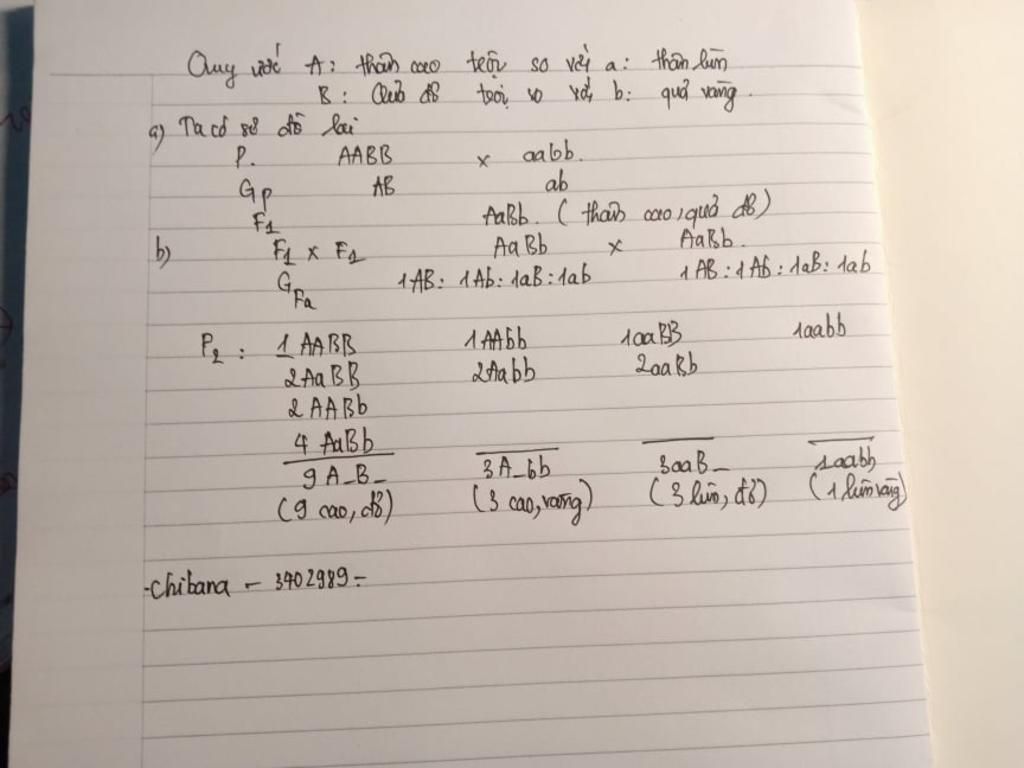 Quy ước A: thân cao trội so với a: thân lùn
B: Quả đỏ trội so với b: quả vàng.
a) Ta có sơ đồ lai
P. AABB x aabb.
Gp AB ab
F1 AaBb. (thân cao, quả đỏ)
b) F1 x F1 AaBb x AaBb.
GFa 1AB: 1Ab: 1aB: 1ab 1AB: 1Ab: 1aB: 1ab
P2: 1AABB 1AAbb 1aaBB 1aabb
2AaBB 2Aabb 2aaBb
2AABb
4 AaBb
9A_B_ 3A_bb 3aaB_ 1aabb
(9 cao, đỏ) (3 cao, vàng) (3 lùn, đỏ) (1 lùn vàng)
-Chibana - 3402989-